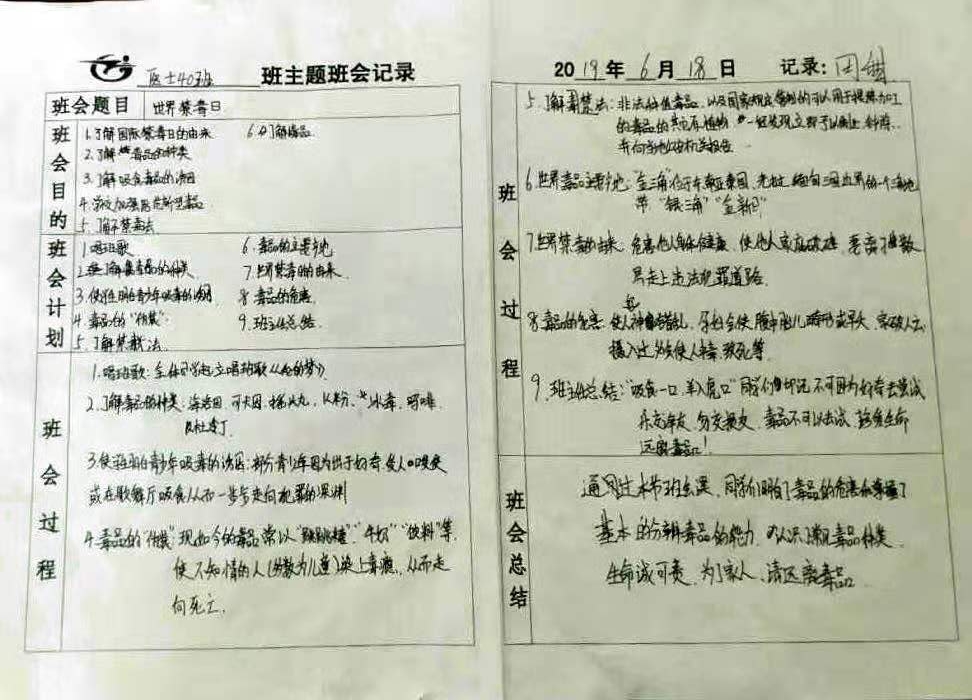 医士40班 班主题班会记录
班会题目 世界禁毒日
班会目的
1.了解国际禁毒日的由来 6.了解毒品
2.了解毒品的种类
3.了解吸食毒品的诱因
4.
5.了解禁毒法
班会计划
1.唱班歌 6.毒品的主要产地
2.了解毒品的种类 7.世界禁毒的由来
3.使 青少年吸毒的诱因 8.毒品的危害
4.毒品的“伪装” 9.班主任总结
5.了解禁毒法
班会过程
1.唱班歌:全体同学起立唱班歌《 的梦》
2.了解毒品的种类:海洛因、可卡因、摇头丸、K粉、冰毒、吗啡、
杜冷丁
3.使 青少年吸毒的诱因:部分青少年因为出于好奇、受人唆使
或在歌舞厅吸食从而一步步走向犯罪的深渊
4.毒品的“伪装”现如今的毒品常以“跳跳糖”、“ ”“饮料”等,
使不知情的人(多数为儿童)染上毒瘾,从而走
向死亡.
2019年6月18日 记录:田
班会过程
5.了解禁毒法:非法种植毒品,以及国家规定管制的可以用于提炼加工
的毒品的其它原植物 一经发现立即予以制止、铲除、
并向当地公安机关报告
6.世界毒品主要产地:“金三角”位于东南亚泰国、老挝、缅甸三国边界的一个三角地
带“银三角”“金新月”
7.世界禁毒的由来:危害他人身体健康,使他人家庭破碎,妻离子散
易走上违法犯罪道路
8.毒品的危害:使人神经错乱,孕妇会使腹中胎儿畸形或早夭,
摄入过多会使人 致死等.
9.班主任总结:“吸食一口,羊入虎口”同学们切记不可因为好奇去尝试
乐交益友,勿交损友,毒品不可以去试,珍爱生命
远离毒品!
班会总结
通过本节班会课,同学们明白了毒品的危害和掌握了
基本的分辨毒品的能力,认识了常见毒品种类,
生命诚可贵,为了家人,请远离毒品